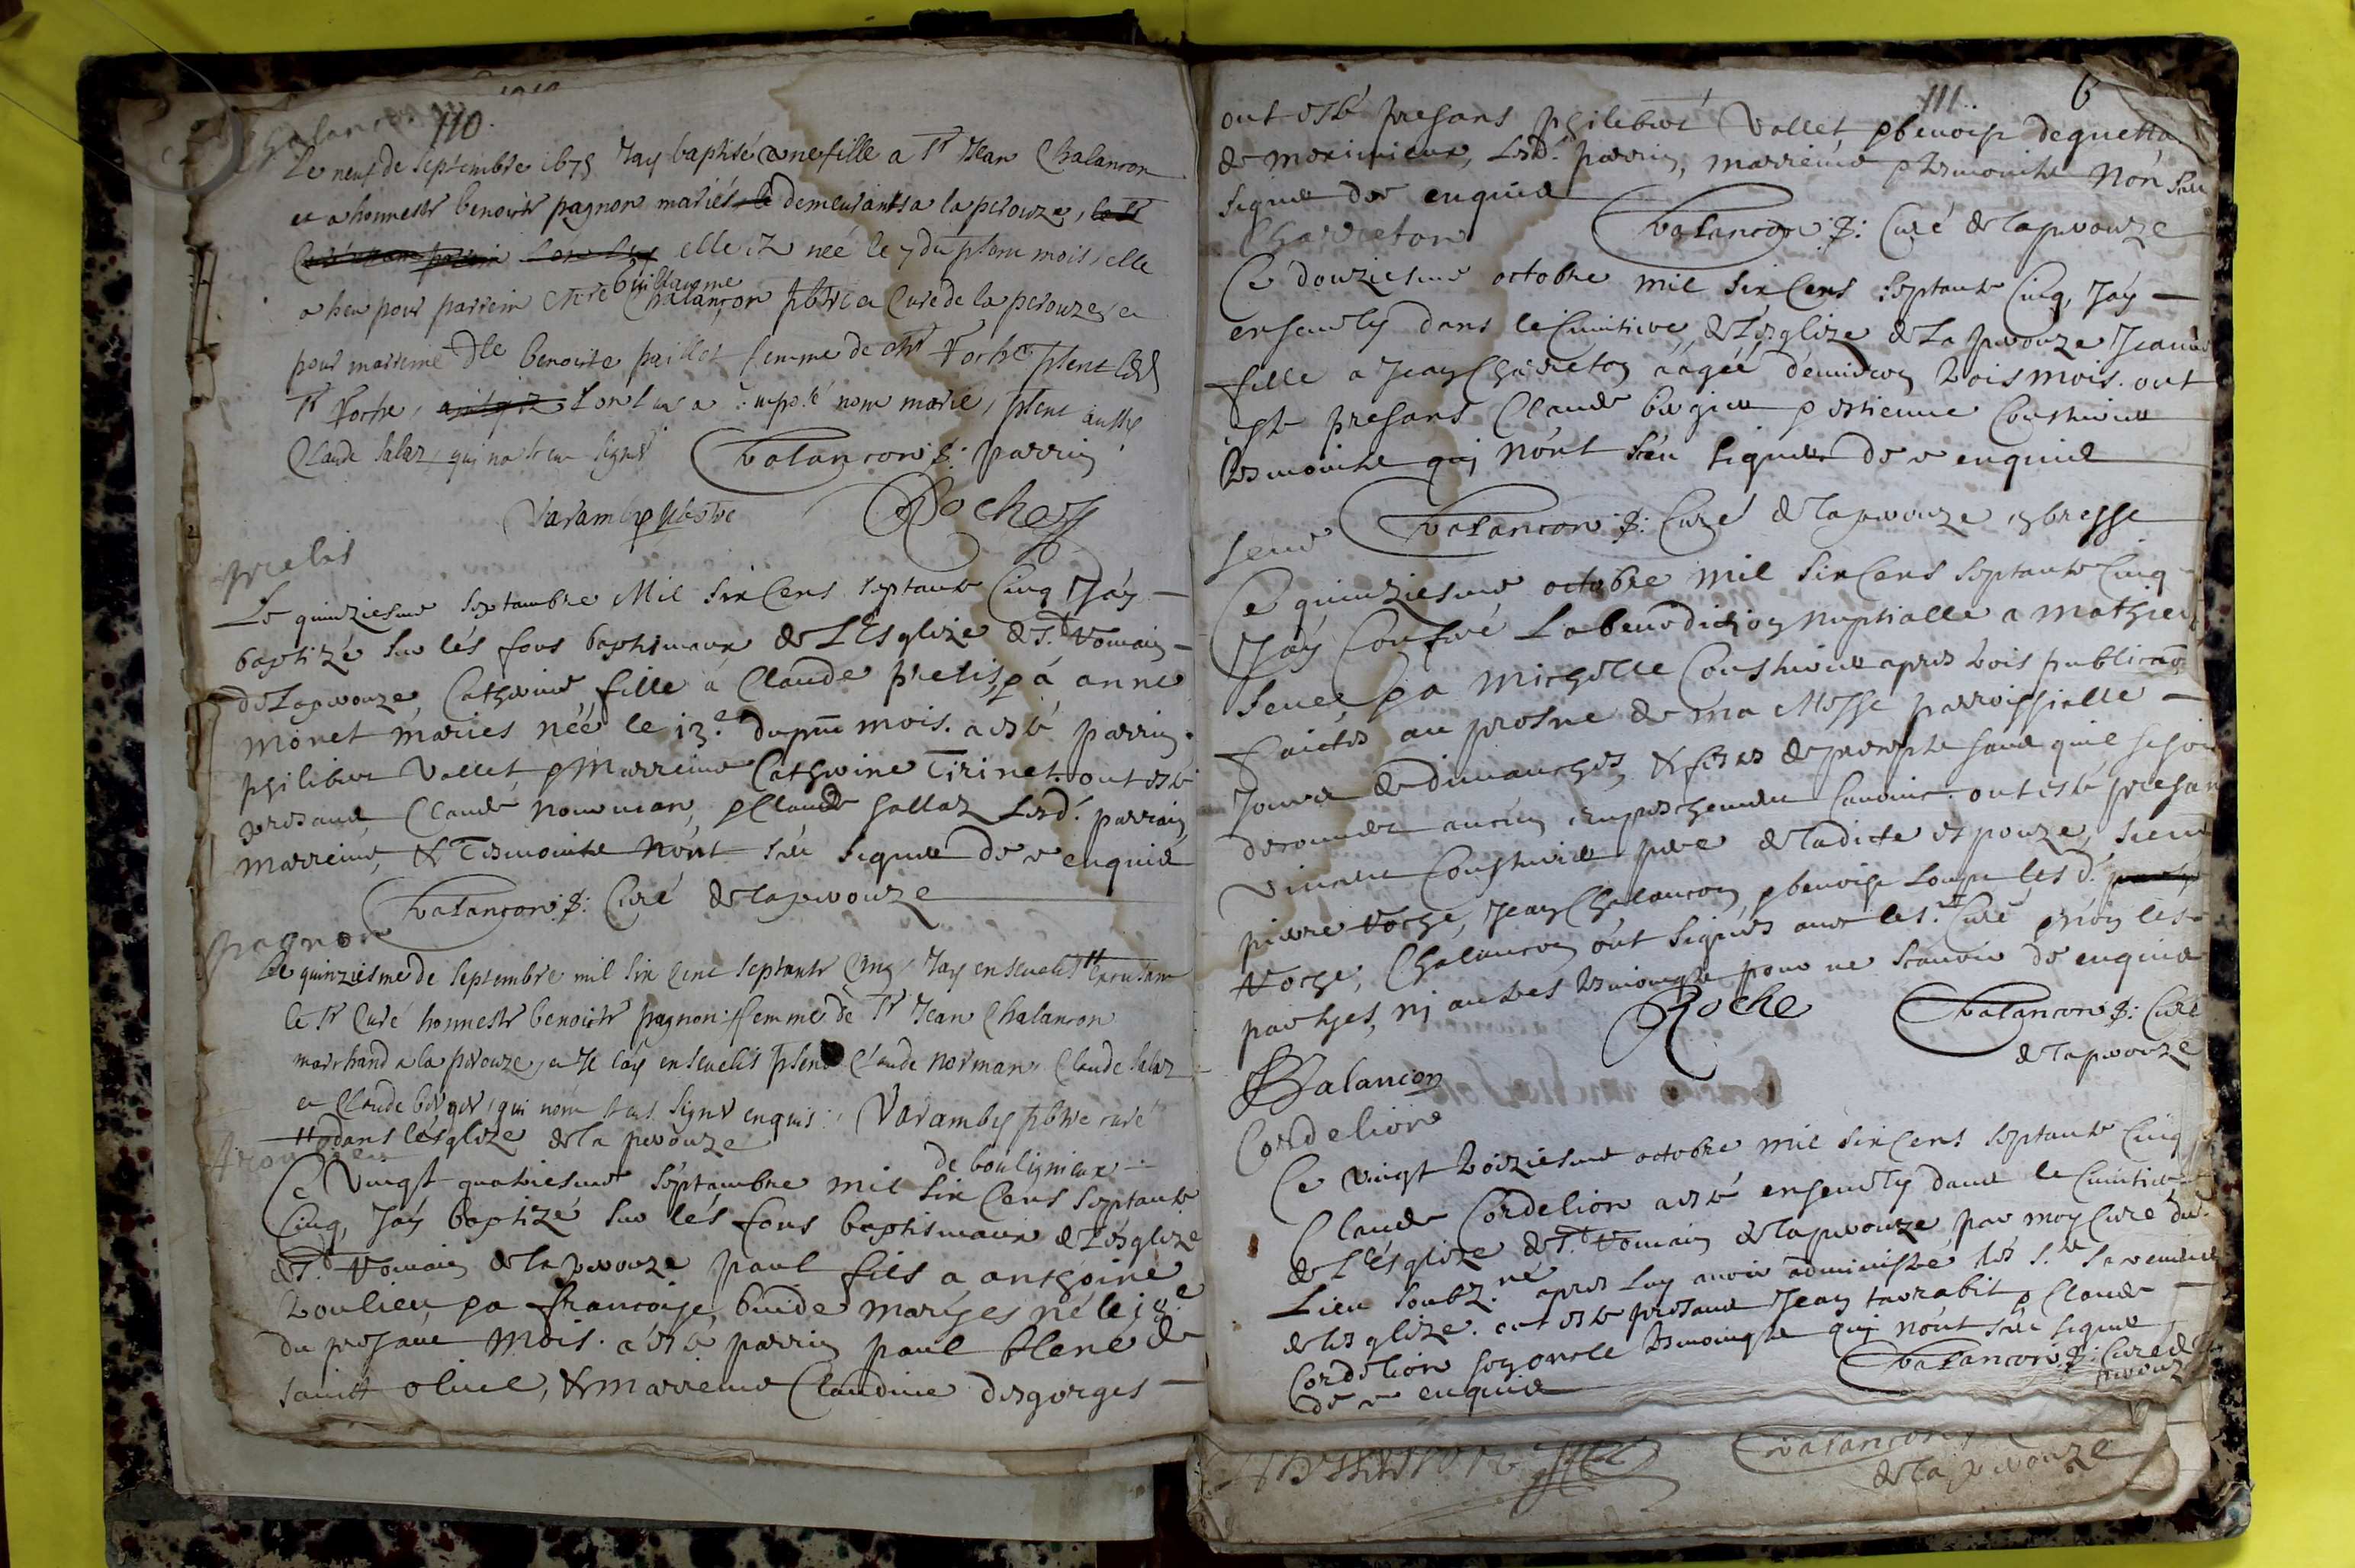 110.
Chalancon
Le neuf de septembre 1675 Jay baptisé une fille a Sr Jean Chalancon
et a honneste benoiste pagnon mariés demeurants a la perouze,
elle est née le 7 du psent mois, elle
a heu pour parrein Mre Guillaume Chalançon pbtre et Curé de la perouze, et
pour marreine Dlle benoiste paillet femme de Mr Roche psent led
Sr Roche, Lon luy a imposé nom marie, psent aussy
Claude salaz, qui na sceu signer Chalancon parrin
Varamby pbstre Roche
prelis
Le quinziesme septambre Mil six Cens septante Cinq Jáy
baptizé sur lés fons baptismaux de L'Esglize de St Romain
de Laperouze, Catherine fille á Claude prelis, & á anne
monet mariés néé le 13e du pnt mois. a esté parrin
philibert Vallet & Marreine Catherine Tirinet. ont esté
presans Claude normman, & Claude sallaz Lesd. parrain,
marreine, & Tesmointz nónt sceu signer de ce enquis
Chalancon Curé de Laperouze
pagnon
Le quinziesme de septembre mil six cent septante Cinq, Jay enseveli
le Sr Curé honneste benoiste pagnon femme de Sr Jean Chalancon
marchand a la perouze, et Je lay ensevelis psens Claude norman, Claude salaz
et Claude berger, qui nont sceus signer enquis, Varamby pbtre curé
dans lésglize de la perouze de bouligneux
Ce Vingt quatriesme séptambre mil six Cens septante
Cinq, Jáy baptizé sur lés fons baptismaux de L'ésglize
de St Romain de la perouze paul fils a anthoine
Troulieu & a francoise buide mariges né le 18e
du presant mois. a esté parrin paul blene de
sainct olive, & marreine Claudine desgorges
111. 6
ont esté presans philibert Vallet & benoist deguetta
de meximieux, Lesd. parrin, marreine & tesmointz nón sceu
signer de ce enquis
Charreton Chalancon Curé de Laperouze
Ce douziesme octobre mil six Cens septante Cinq, Jáy
ensevely dans le Cimitiere de L'ésglize de La perouze Jeanne
fille a Jean Charreton áagéé d'environ trois mois. ont
esté presans Claude bergier & estienne Cousturier
tesmointz qui nónt sceu signer de ce enquis
Chalancon Curé de Laperouze en bresse
Seve
Ce quinziesme octobre mil six Cens septante Cinq
Jáy Conferé La benediction nuptialle a mathieu
Seve, & a Michelle Cousturier aprés trois publicaons
faictes au prosne de ma Messe parroissialle
Jours de dimanches, & festes de precepte sans qu'il se soit
descouvert aucun empeschement Canonic. ont esté presans
Vincent Cousturier pere de Ladicte espouze, sieur
pierre Roche, Jean Chalancon, & benoist Loup. lesd.
Roche, Chalancon ónt signés avec le sr Curé & nón les
parties, ni autres tesmoingtz pour ne scavoir de enquis
Roche Chalancon Curé
de Laperouze
Chalancon
Cordelion
Ce vingt troiziesme octobre mil six Cens septante Cinq
Claude Cordelion a esté ensevely dans le Cimitiere
de L'Esglize de St Romain de Laperouze, par moy Curé dud.
Lieu soubz.né apres luy avoir administré lés S.ts Sacremens
de lesglize. ont esté presans Jean tarrabit, & Claude
Cordelion son oncle tesmoingtz qui nónt sceu signer
de ce enquis Chalancon Curé de
perouze
Chalancon
de Laperouze